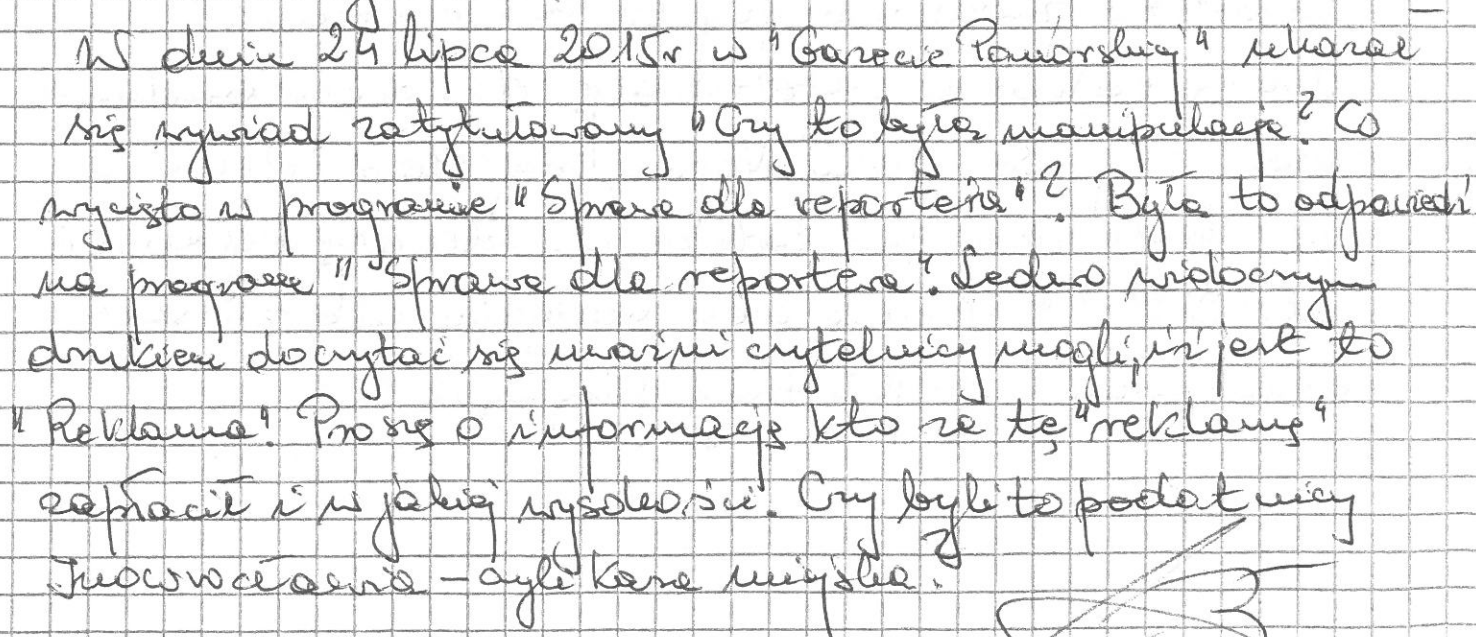 W dniu 24 lipca 2015r w "Gazecie Pomorskiej" ukazał
się wywiad zatytułowany "Czy to była manipulacja? Co
wycięto w programie "Sprawa dla reportera"? Była to odpowiedź
na program "Sprawa dla reportera". Ledwo widocznym
drukiem doczytać się uważni czytelnicy mogli, iż jest to
"Reklama". Proszę o informację kto za tę "reklamę"
zapłacił i w jakiej wysokości. Czy byli to podatnicy
Inowrocławia – czyli kasa miejska?